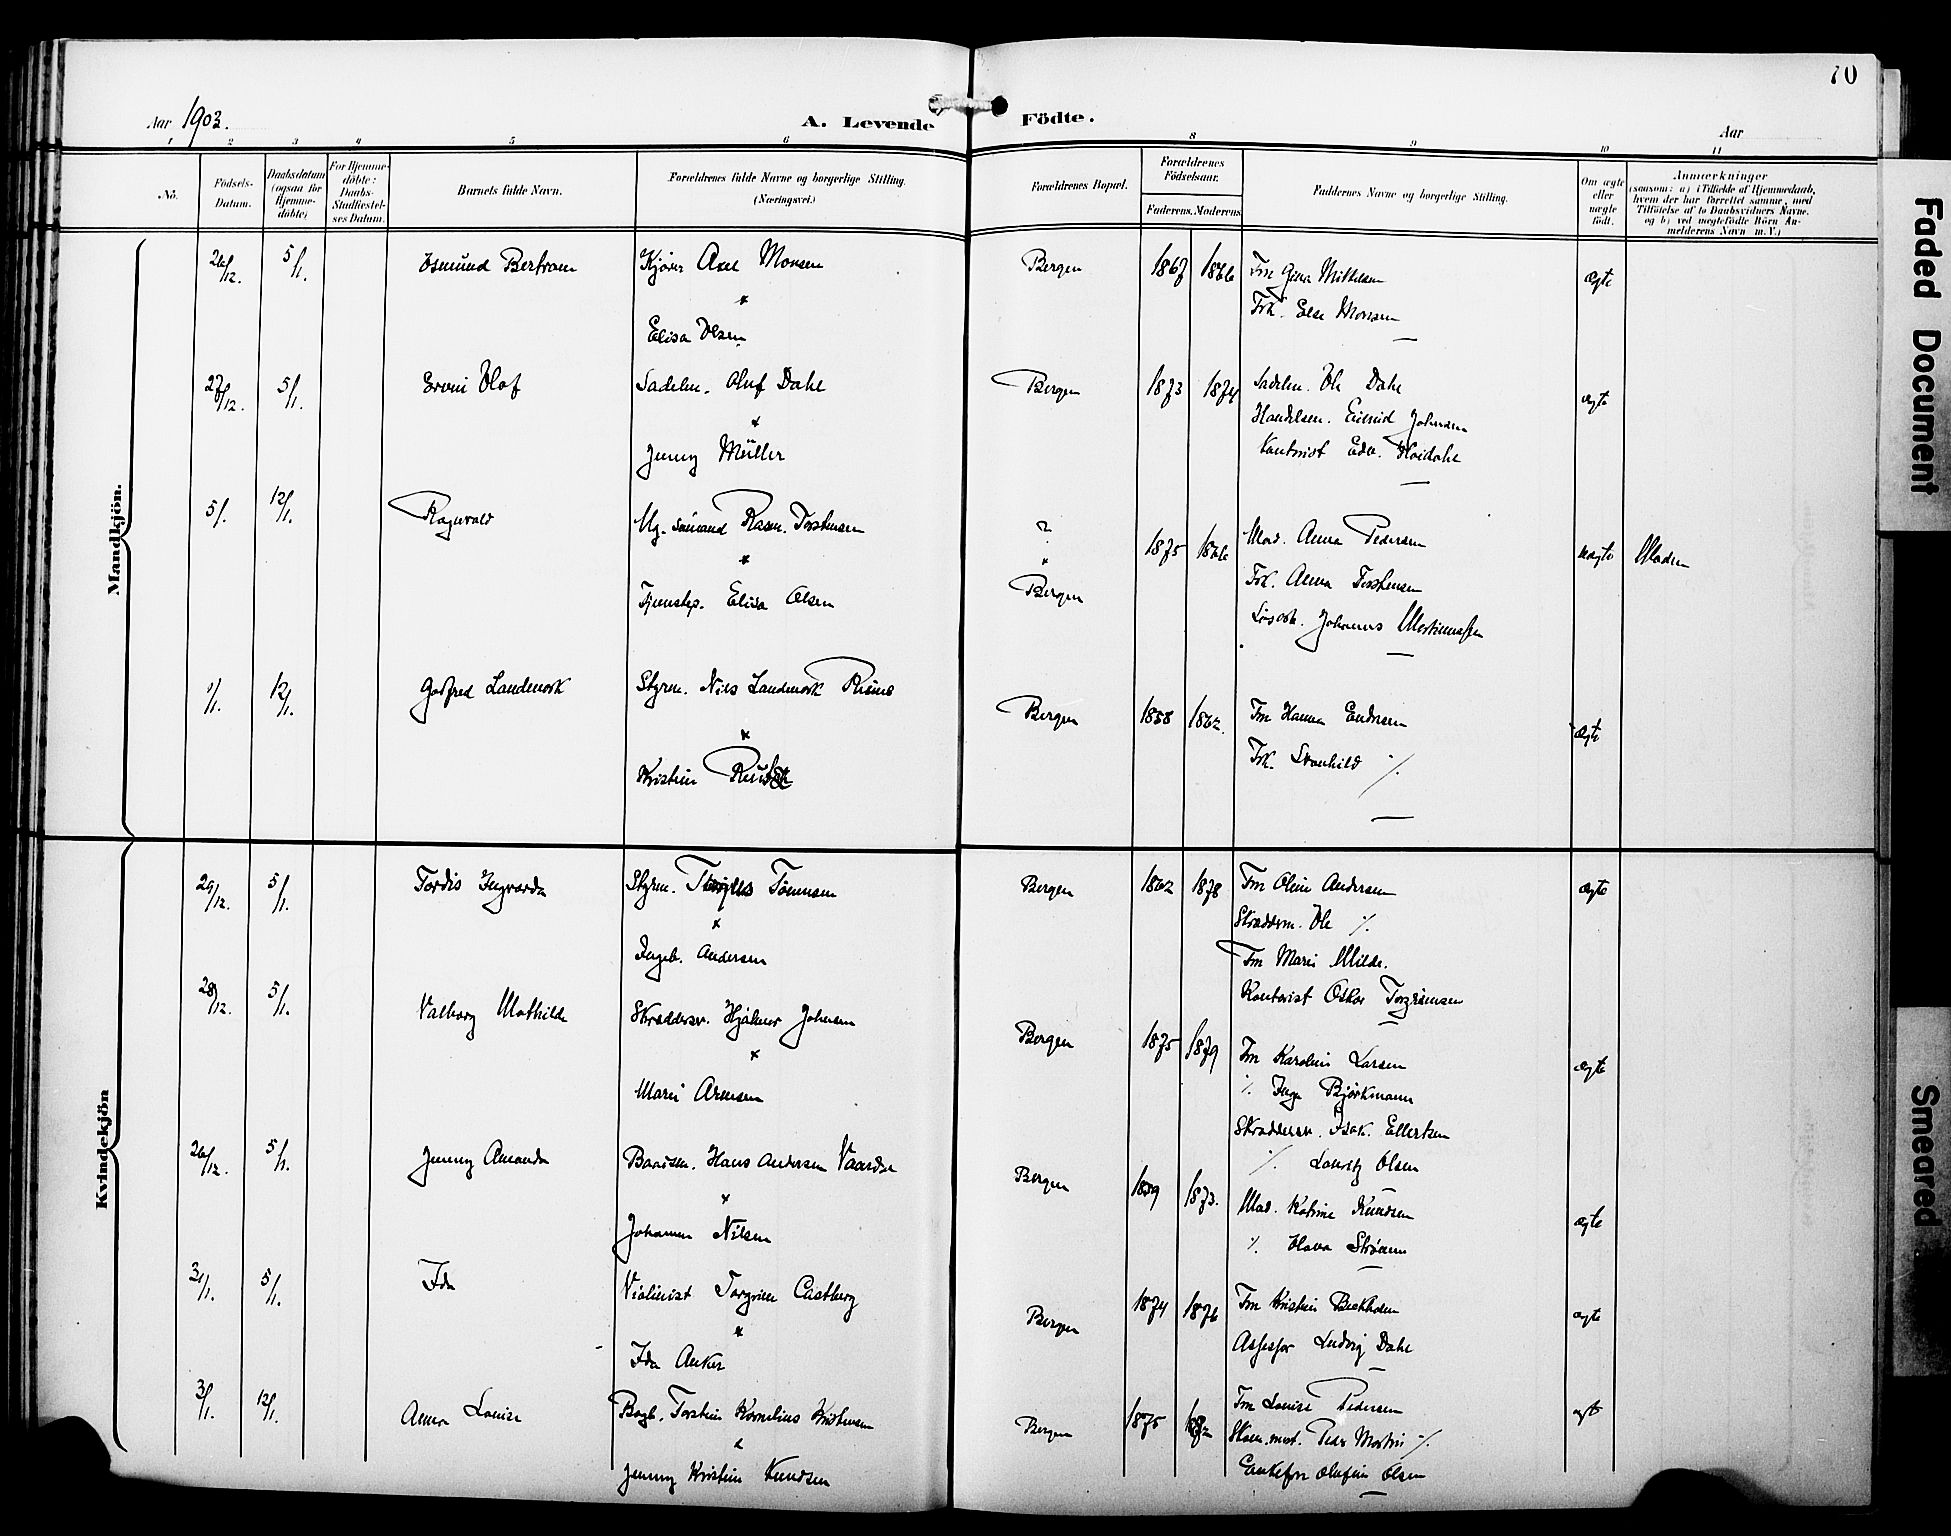 70
Aar 1903.
A. Levende Födte.
Aar
1 2 3 4 5 6 8 9 10 11
No.
Födsels-Datum.
Daabsdatum (ogsaa for Hjemme-döbte)
For Hjemme-döbte: Daabs-Stadfæstel-ses Datum.
Barnets fulde Navn.
Forældrenes fulde Navne og borgerlige Stilling. (Næringsvei.)
Forældrenes Bopæl.
Forældrenes Födselsaar.
Faderens. Moderens.
Faddernes Navne og borgerlige Stilling.
Om ægte eller uægte födt.
Anmærkninger
(saasom: a) i Tilfælde af Hjemmedaab, hvem der har forrettet samme, med Tilföielse af to Daabsvidners Navne. og b) ved uægtefödte Börn An-melderens Navn m. V.)
Mandkjön.
26/12. 5/1. Osmund Bertram Kjører Axel Monsen Bergen 1867 1866 Fru Gina Mikkelsen ægte
Frk. Else Monsen
Elisa Olsen
27/12. 5/1. Ervin Olaf Sadelm. Oluf Dahl Bergen 1873 1874 Sadelm. Ole Dahl ægte
Handelsm. Johnsen
Jenny Müller Kontorist Edv. Høidahl
5/1. 12/1. Ragnvald Ug. sömand Rasm. Torstensen ? 1875 1866 Mad. Anna Pedersen uægte Moderen
Frk. Anna Torstensen
Tjenestep. Elisa Olsen Bergen
Johannes Martinussen
1/1. 12/1. Godfred Landmark Styrm. Nils Landmark Bergen 1858 1862. Fru Hanna Endresen ægte
Frk. Svanhild %
Kristine
Kvindekjön
29/12. 5/1. Tordis Ingvarda Styrm. Tönnesen Bergen 1862 1878 Fru Oline Andersen ægte
Skrædderm. Ole %.
Ingeb. Andersen Fru Marie Milde.
Kontorist Oskar Torgersen
28/12. 5/1. Valborg Mathilde Skræddersv. Hjalmar Johnsen Bergen 1875 1879 Fru Karoline Larsen ægte
%. Inga Björkmann
Marie Arnesen Skræddersv. Isak. Ellertsen
%. Lauritz Olsen
26/12. 5/1. Jenny Amanda Baadsm. Hans Andersen Vaardal Bergen 1859 1873. Mad. Katrine Knudsen ægte
Johanne Nilsen %. Olava Strömm
3/1. 5/1. Ida Violinist Torgrim Castberg Bergen 1874 1876 Fru Kristine Beckholm ægte
Ida Anker Assessor Ludvig Dahl
3/1. 12/1. Anna Louise Bagb. Torstein Kornelius Kristensen Bergen 1875 1872 Fru Louise Pedersen ægte
Skom.mest. Peder Martin %.
Jenny Kristine Knudsen Enkefru Olufine Olsen
Faded Document
Smeared